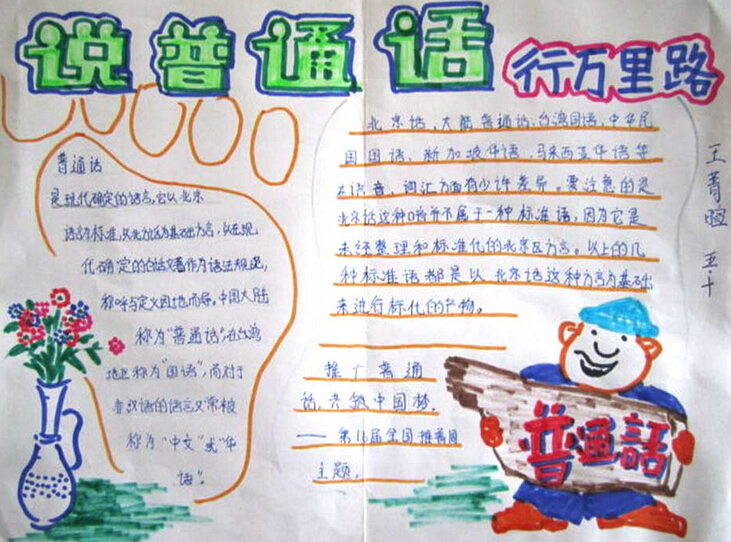 说普通话
行万里路
普通话
是现代确定的语言,它以北京
语音为标准,以北方话为基础方言,以在现
代确定的白话文著作为语法规范,
称呼与定义因地而异。中国大陆
称为“普通话”,在台湾
地区称为“国语”,而对于
非汉语的语言又常被
称为“中文”或“华
语”。
北京话、大陆普通话,台湾国语、中华民
国国语、新加坡华语、马来西亚华语等
在读音、词汇方面有少许差异。要注意的是
北京话这种口音并不属于一种标准语,因为它是
未经整理和标准化的北京区方言。以上的几
种标准语都是以北京话这种方言为基础
来进行标化的产物。
推广普通
话,共筑中国梦.
——第16届全国推普周
主题.
王菁暄
五·十
普通話